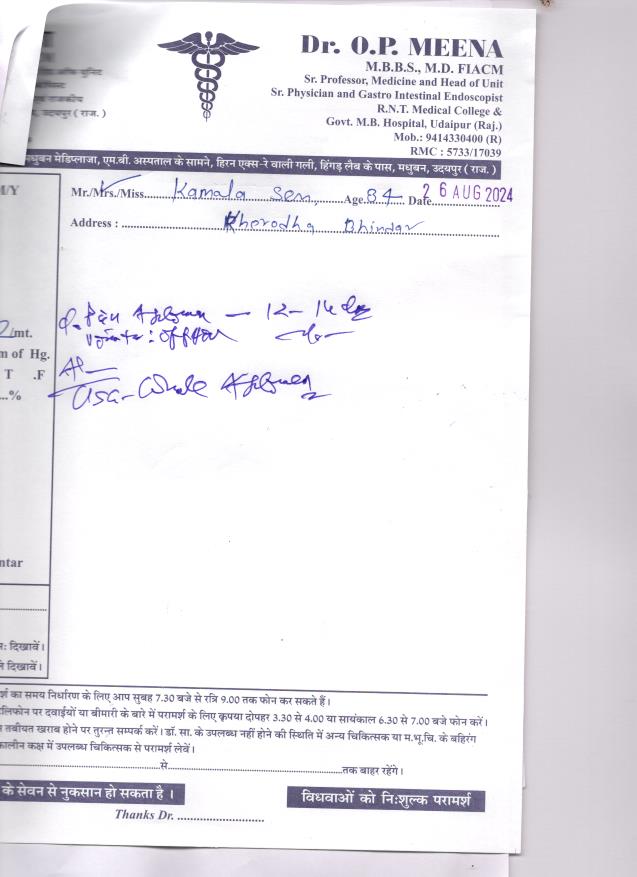 Dr. O.P. MEENA
M.B.B.S., M.D. FIACM
Sr. Professor, Medicine and Head of Unit
Sr. Physician and Gastro Intestinal Endoscopist
R.N.T. Medical College &
Govt. M.B. Hospital, Udaipur (Raj.)
Mob.: 9414330400 (R)
RMC : 5733/17039
, उदयपुर ( राज. )
मधुबन मेडिप्लाजा, एम.बी. अस्पताल के सामने, हिरन एक्स-रे वाली गली, हिंगड़ लैब के पास, मधुबन, उदयपुर ( राज. )
M/Y
Mr./Mrs./Miss. Kamala Sen, Age. 84 Date 26 AUG 2024
Address : Kherodha Bhindar
12-14
/mt.
m of Hg.
T .F
...%
USG- Whole Abdomen
ntar
: दिखावें।
दिखावें।
र्श का समय निर्धारण के लिए आप सुबह 7.30 बजे से रात्रि 9.00 तक फोन कर सकते हैं।
लिफोन पर दवाईयों या बीमारी के बारे में परामर्श के लिए कृपया दोपहर 3.30 से 4.00 या सायंकाल 6.30 से 7.00 बजे फोन करें।
तबीयत खराब होने पर तुरन्त सम्पर्क करें। डॉ. सा. के उपलब्ध नहीं होने की स्थिति में अन्य चिकित्सक या म.भू.चि. के बहिरंग
कालीन कक्ष में उपलब्ध चिकित्सक से परामर्श लेवें।
से तक बाहर रहेंगे।
के सेवन से नुकसान हो सकता है ।
विधवाओं को निःशुल्क परामर्श
Thanks Dr.